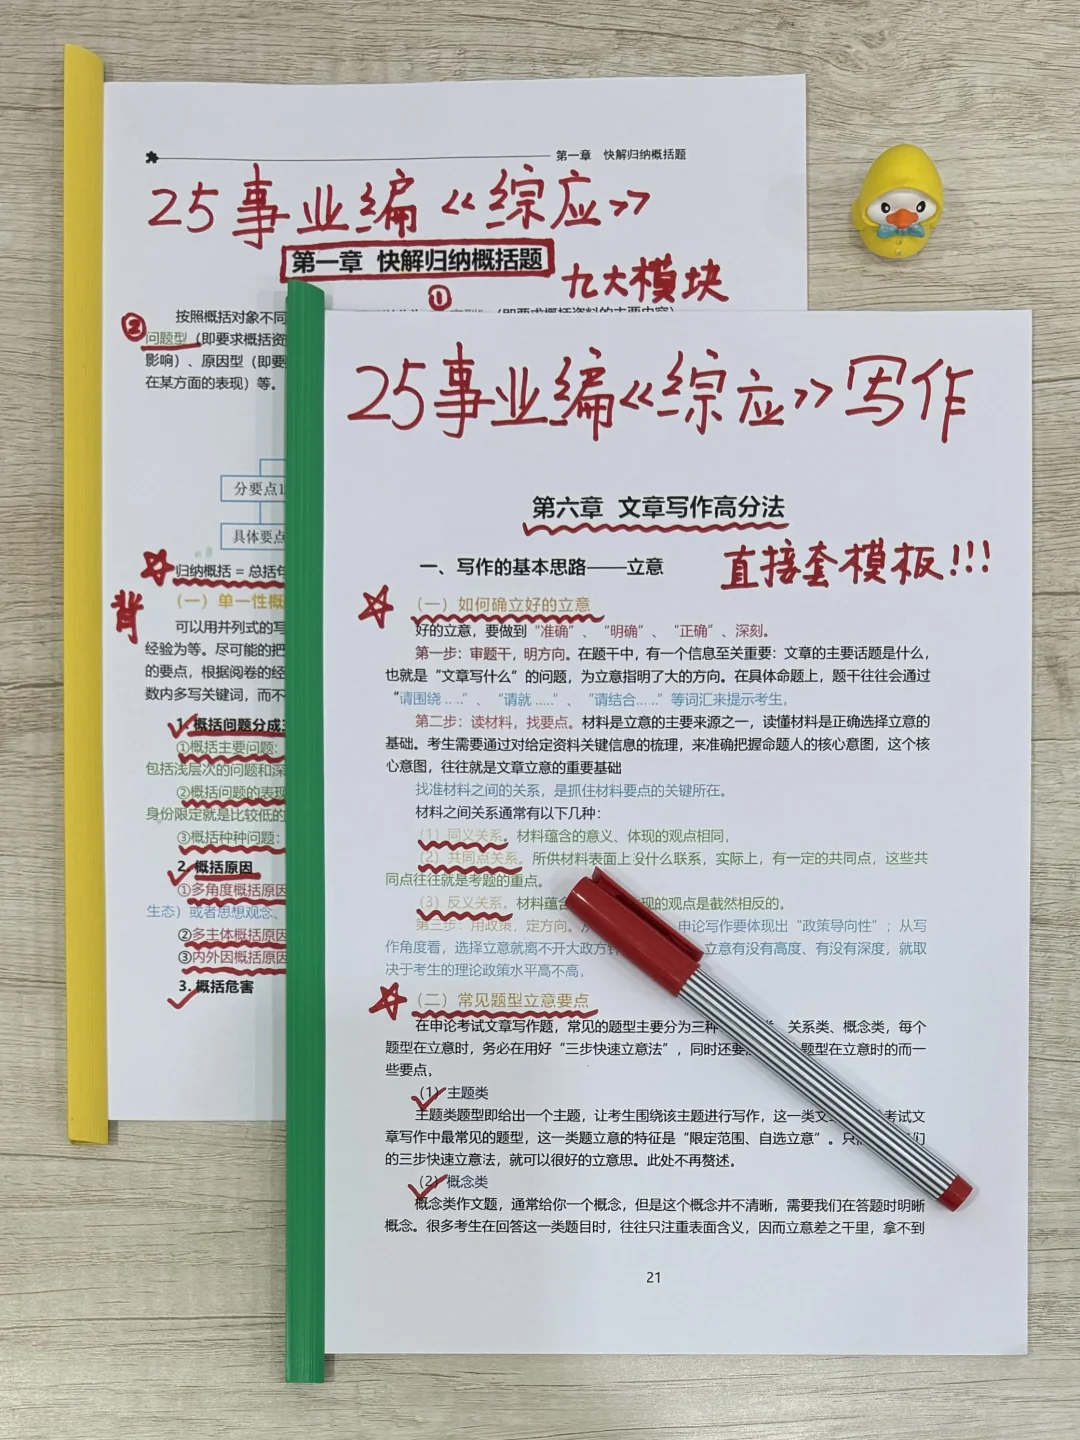 第一章 快解归纳概括题
25事业编《综应》
第一章 快解归纳概括题
九大模块
①
②
按照概括对象不同
问题型（即要求概括资
影响）、原因型（即要
在某方面的表现）等。
分要点1
具体要点
归纳概括 = 总括句
背
（一）单一性概
可以用并列式的写
经验为等。尽可能的把
的要点，根据阅卷的经
数内多写关键词，而不
1. 概括问题分成
①概括主要问题：
包括浅层次的问题和深
②概括问题的表现
身份限定就是比较低的
③概括种种问题：
2. 概括原因
①多角度概括原因
生态）或者思想观念、
②多主体概括原因
③内外因概括原因
3. 概括危害
25事业编《综应》写作
第六章 文章写作高分法
直接套模板!!!
一、写作的基本思路——立意
（一）如何确立好的立意
好的立意，要做到“准确”、“明确”、“正确”、深刻。
第一步：审题干，明方向。在题干中，有一个信息至关重要：文章的主要话题是什么，
也就是“文章写什么”的问题，为立意指明了大的方向。在具体命题上，题干往往会通过
“请围绕……”、“请就……”、“请结合……”等词汇来提示考生，
第二步：读材料，找要点。材料是立意的主要来源之一，读懂材料是正确选择立意的
基础。考生需要通过对给定资料关键信息的梳理，来准确把握命题人的核心意图，这个核
心意图，往往就是文章立意的重要基础
找准材料之间的关系，是抓住材料要点的关键所在。
材料之间关系通常有以下几种：
（1）同义关系。材料蕴含的意义、体现的观点相同，
（2）共同点关系。所供材料表面上没什么联系，实际上，有一定的共同点，这些共
同点往往就是考题的重点。
（3）反义关系。材料蕴含 现的观点是截然相反的。
第三步：用政策，定方向。 申论写作要体现出“政策导向性”；从写
作角度看，选择立意就离不开大政方针 立意有没有高度、有没有深度，就取
决于考生的理论政策水平高不高，
（二）常见题型立意要点
在申论考试文章写作题，常见的题型主要分为三种 关系类、概念类，每个
题型在立意时，务必在用好“三步快速立意法”，同时还要 题型在立意时的而一
些要点，
（1）主题类
主题类题型即给出一个主题，让考生围绕该主题进行写作，这一类文 考试文
章写作中最常见的题型，这一类题立意的特征是“限定范围、自选立意”。只 们
的三步快速立意法，就可以很好的立意思。此处不再赘述。
（2）概念类
概念类作文题，通常给你一个概念，但是这个概念并不清晰，需要我们在答题时明晰
概念。很多考生在回答这一类题目时，往往只注重表面含义，因而立意差之千里，拿不到
21